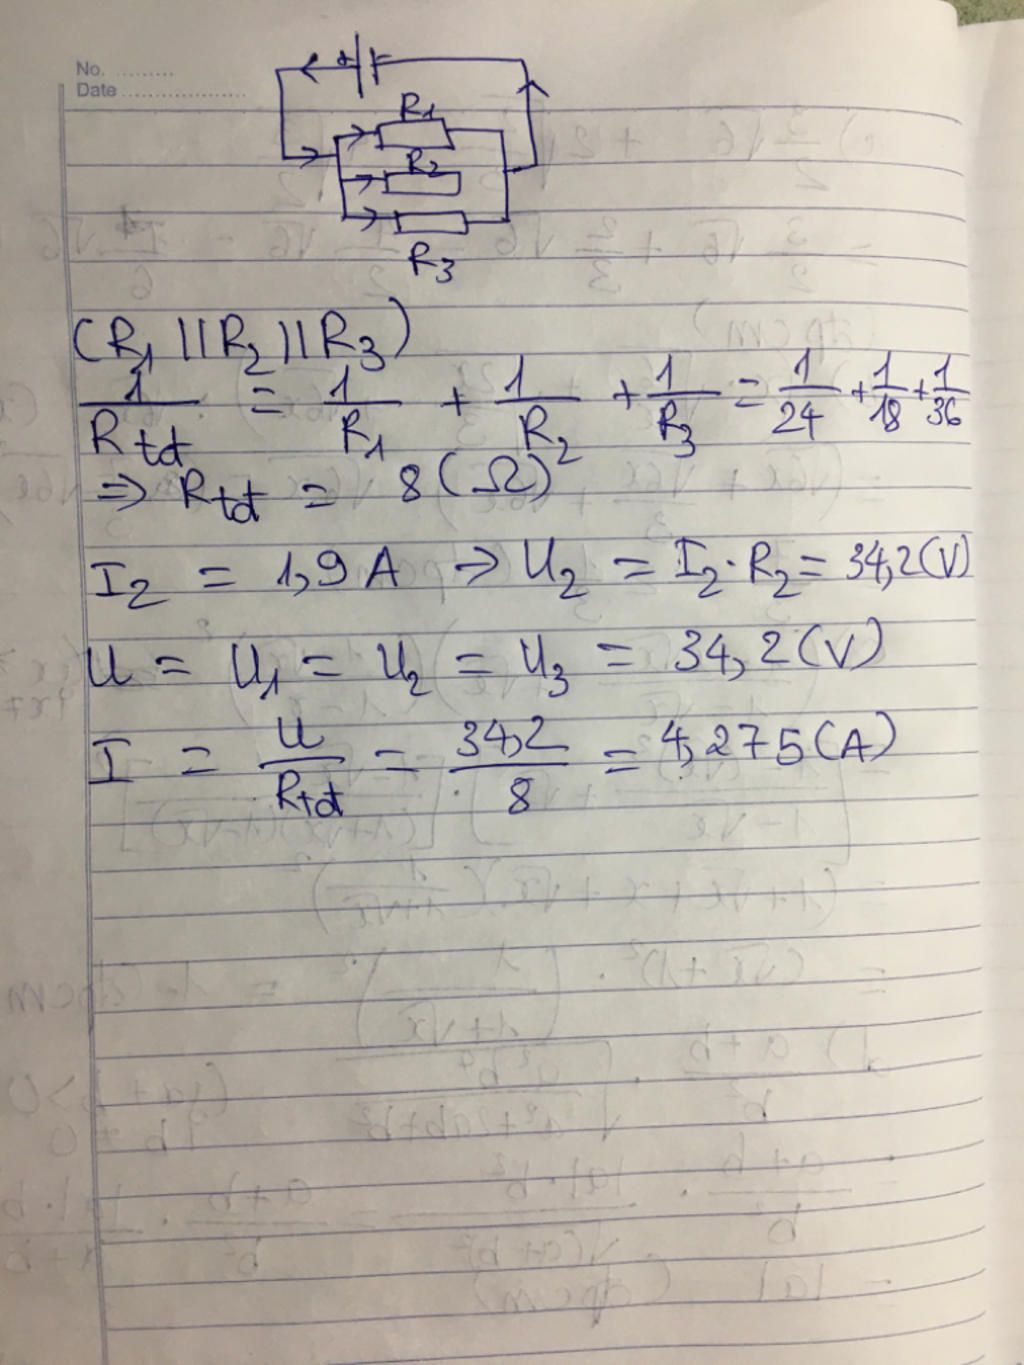 No. ..........
Date ....................
R1
R2
R3
(R1 || R2 || R3)
1/Rtd = 1/R1 + 1/R2 + 1/R3 = 1/24 + 1/18 + 1/36
=> Rtd = 8 (Ω)
I2 = 1,9 A → U2 = I2 . R2 = 34,2 (V)
U = U1 = U2 = U3 = 34,2 (V)
I = U/Rtd = 34,2/8 = 4,275 (A)